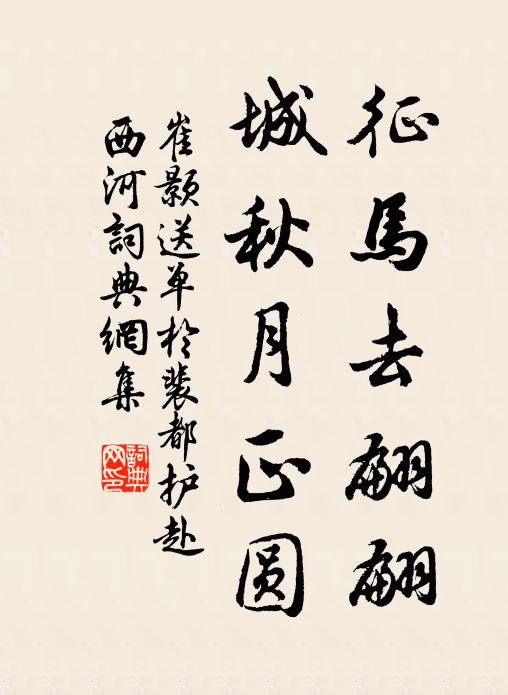 征馬去翩翩
城秋月正圆
崔颢送单於裴都护赴
西河詞典網集
詞典网印